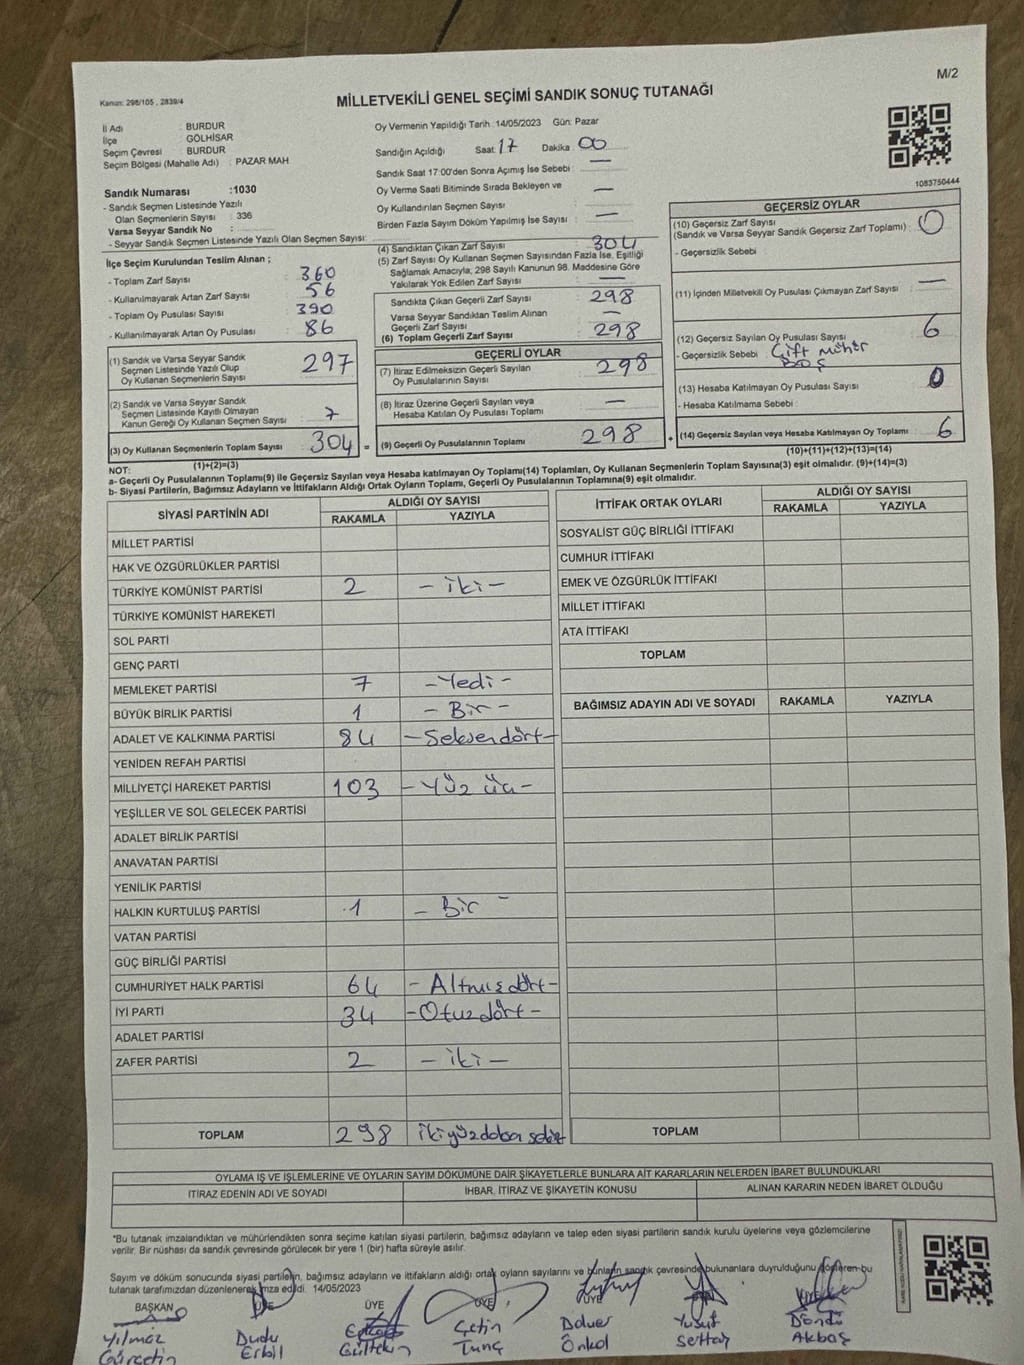 M/2
Kanun: 298/105 , 2839/4
MİLLETVEKİLİ GENEL SEÇİMİ SANDIK SONUÇ TUTANAĞI
İl Adı : BURDUR
İlçe : GÖLHİSAR
Seçim Çevresi : BURDUR
Seçim Bölgesi (Mahalle Adı) : PAZAR MAH
Sandık Numarası :1030
- Sandık Seçmen Listesinde Yazılı
Olan Seçmenlerin Sayısı : 336
Varsa Seyyar Sandık No :
- Seyyar Sandık Seçmen Listesinde Yazılı Olan Seçmen Sayısı:
Oy Vermenin Yapıldığı Tarih :14/05/2023 Gün: Pazar
Sandığın Açıldığı Saat 17 Dakika : 00
Sandık Saat 17:00'den Sonra Açımış İse Sebebi : —
Oy Verme Saati Bitiminde Sırada Bekleyen ve
Oy Kullandırılan Seçmen Sayısı : —
Birden Fazla Sayım Döküm Yapılmış İse Sayısı : —
1083750444
İlçe Seçim Kurulundan Teslim Alınan ;
- Toplam Zarf Sayısı : 360
- Kullanılmayarak Artan Zarf Sayısı : 56
- Toplam Oy Pusulası Sayısı : 390
- Kullanılmayarak Artan Oy Pusulası : 86
(1) Sandık ve Varsa Seyyar Sandık
Seçmen Listesinde Yazılı Olup
Oy Kullanan Seçmenlerin Sayısı : 297
(2) Sandık ve Varsa Seyyar Sandık
Seçmen Listesinde Kayıtlı Olmayan
Kanun Gereği Oy Kullanan Seçmen Sayısı : 7
(3) Oy Kullanan Seçmenlerin Toplam Sayısı : 304 =
(1)+(2)=(3)
(4) Sandıktan Çıkan Zarf Sayısı : 304
(5) Zarf Sayısı Oy Kullanan Seçmen Sayısından Fazla İse, Eşitliği
Sağlamak Amacıyla, 298 Sayılı Kanunun 98. Maddesine Göre
Yakılarak Yok Edilen Zarf Sayısı : —
Sandıkta Çıkan Geçerli Zarf Sayısı : 298
Varsa Seyyar Sandıktan Teslim Alınan
Geçerli Zarf Sayısı : —
(6) Toplam Geçerli Zarf Sayısı : 298
GEÇERLİ OYLAR
(7) İtiraz Edilmeksizin Geçerli Sayılan
Oy Pusulalarının Sayısı : 298
(8) İtiraz Üzerine Geçerli Sayılan veya
Hesaba Katılan Oy Pusulası Toplamı : —
(9) Geçerli Oy Pusulalarının Toplamı : 298 +
GEÇERSİZ OYLAR
(10) Geçersiz Zarf Sayısı
(Sandık ve Varsa Seyyar Sandık Geçersiz Zarf Toplamı) : 0
- Geçersizlik Sebebi :
(11) İçinden Milletvekili Oy Pusulası Çıkmayan Zarf Sayısı : —
(12) Geçersiz Sayılan Oy Pusulası Sayısı : 6
- Geçersizlik Sebebi : Çift mühür
Boş
(13) Hesaba Katılmayan Oy Pusulası Sayısı : 0
- Hesaba Katılmama Sebebi :
(14) Geçersiz Sayılan veya Hesaba Katılmayan Oy Toplamı : 6
(10)+(11)+(12)+(13)=(14)
NOT:
a- Geçerli Oy Pusulalarının Toplamı(9) ile Geçersiz Sayılan veya Hesaba katılmayan Oy Toplamı(14) Toplamları, Oy Kullanan Seçmenlerin Toplam Sayısına(3) eşit olmalıdır. (9)+(14)=(3)
b- Siyasi Partilerin, Bağımsız Adayların ve İttifakların Aldığı Ortak Oyların Toplamı, Geçerli Oy Pusulalarının Toplamına(9) eşit olmalıdır.
SİYASİ PARTİNİN ADI ALDIĞI OY SAYISI
RAKAMLA YAZIYLA
MİLLET PARTİSİ
HAK VE ÖZGÜRLÜKLER PARTİSİ
TÜRKİYE KOMÜNİST PARTİSİ 2 - iki -
TÜRKİYE KOMÜNİST HAREKETİ
SOL PARTİ
GENÇ PARTİ
MEMLEKET PARTİSİ 7 - Yedi -
BÜYÜK BİRLİK PARTİSİ 1 - Bir -
ADALET VE KALKINMA PARTİSİ 84 - Seksendört -
YENİDEN REFAH PARTİSİ
MİLLİYETÇİ HAREKET PARTİSİ 103 - Yüz üç -
YEŞİLLER VE SOL GELECEK PARTİSİ
ADALET BİRLİK PARTİSİ
ANAVATAN PARTİSİ
YENİLİK PARTİSİ
HALKIN KURTULUŞ PARTİSİ 1 - Bir -
VATAN PARTİSİ
GÜÇ BİRLİĞİ PARTİSİ
CUMHURİYET HALK PARTİSİ 64 - Altmışdört -
İYİ PARTİ 34 - Otuzdört -
ADALET PARTİSİ
ZAFER PARTİSİ 2 - iki -
TOPLAM 298
İTTİFAK ORTAK OYLARI ALDIĞI OY SAYISI
RAKAMLA YAZIYLA
SOSYALİST GÜÇ BİRLİĞİ İTTİFAKI
CUMHUR İTTİFAKI
EMEK VE ÖZGÜRLÜK İTTİFAKI
MİLLET İTTİFAKI
ATA İTTİFAKI
TOPLAM
BAĞIMSIZ ADAYIN ADI VE SOYADI RAKAMLA YAZIYLA
TOPLAM
OYLAMA İŞ VE İŞLEMLERİNE VE OYLARIN SAYIM DÖKÜMÜNE DAİR ŞİKAYETLERLE BUNLARA AİT KARARLARIN NELERDEN İBARET BULUNDUKLARI
İTİRAZ EDENİN ADI VE SOYADI İHBAR, İTİRAZ VE ŞİKAYETİN KONUSU ALINAN KARARIN NEDEN İBARET OLDUĞU
*Bu tutanak imzalandıktan ve mühürlendikten sonra seçime katılan siyasi partilerin, bağımsız adayların ve talep eden siyasi partilerin sandık kurulu üyelerine veya gözlemcilerine
verilir. Bir nüshası da sandık çevresinde görülecek bir yere 1 (bir) hafta süreyle asılır.
Sayım ve döküm sonucunda siyasi partilerin, bağımsız adayların ve ittifakların aldığı ortak oyların sayılarını ve bunların sandık çevresinde bulunanlara duyrulduğunu gösteren bu
tutanak tarafımızdan düzenlenerek imza edildi. 14/05/2023
BAŞKAN ÜYE ÜYE ÜYE ÜYE ÜYE
Yılmaz Dudu Çetin Yusuf Döndü
Erbil Gültekin Tunç Önkol Settaş Akbaş